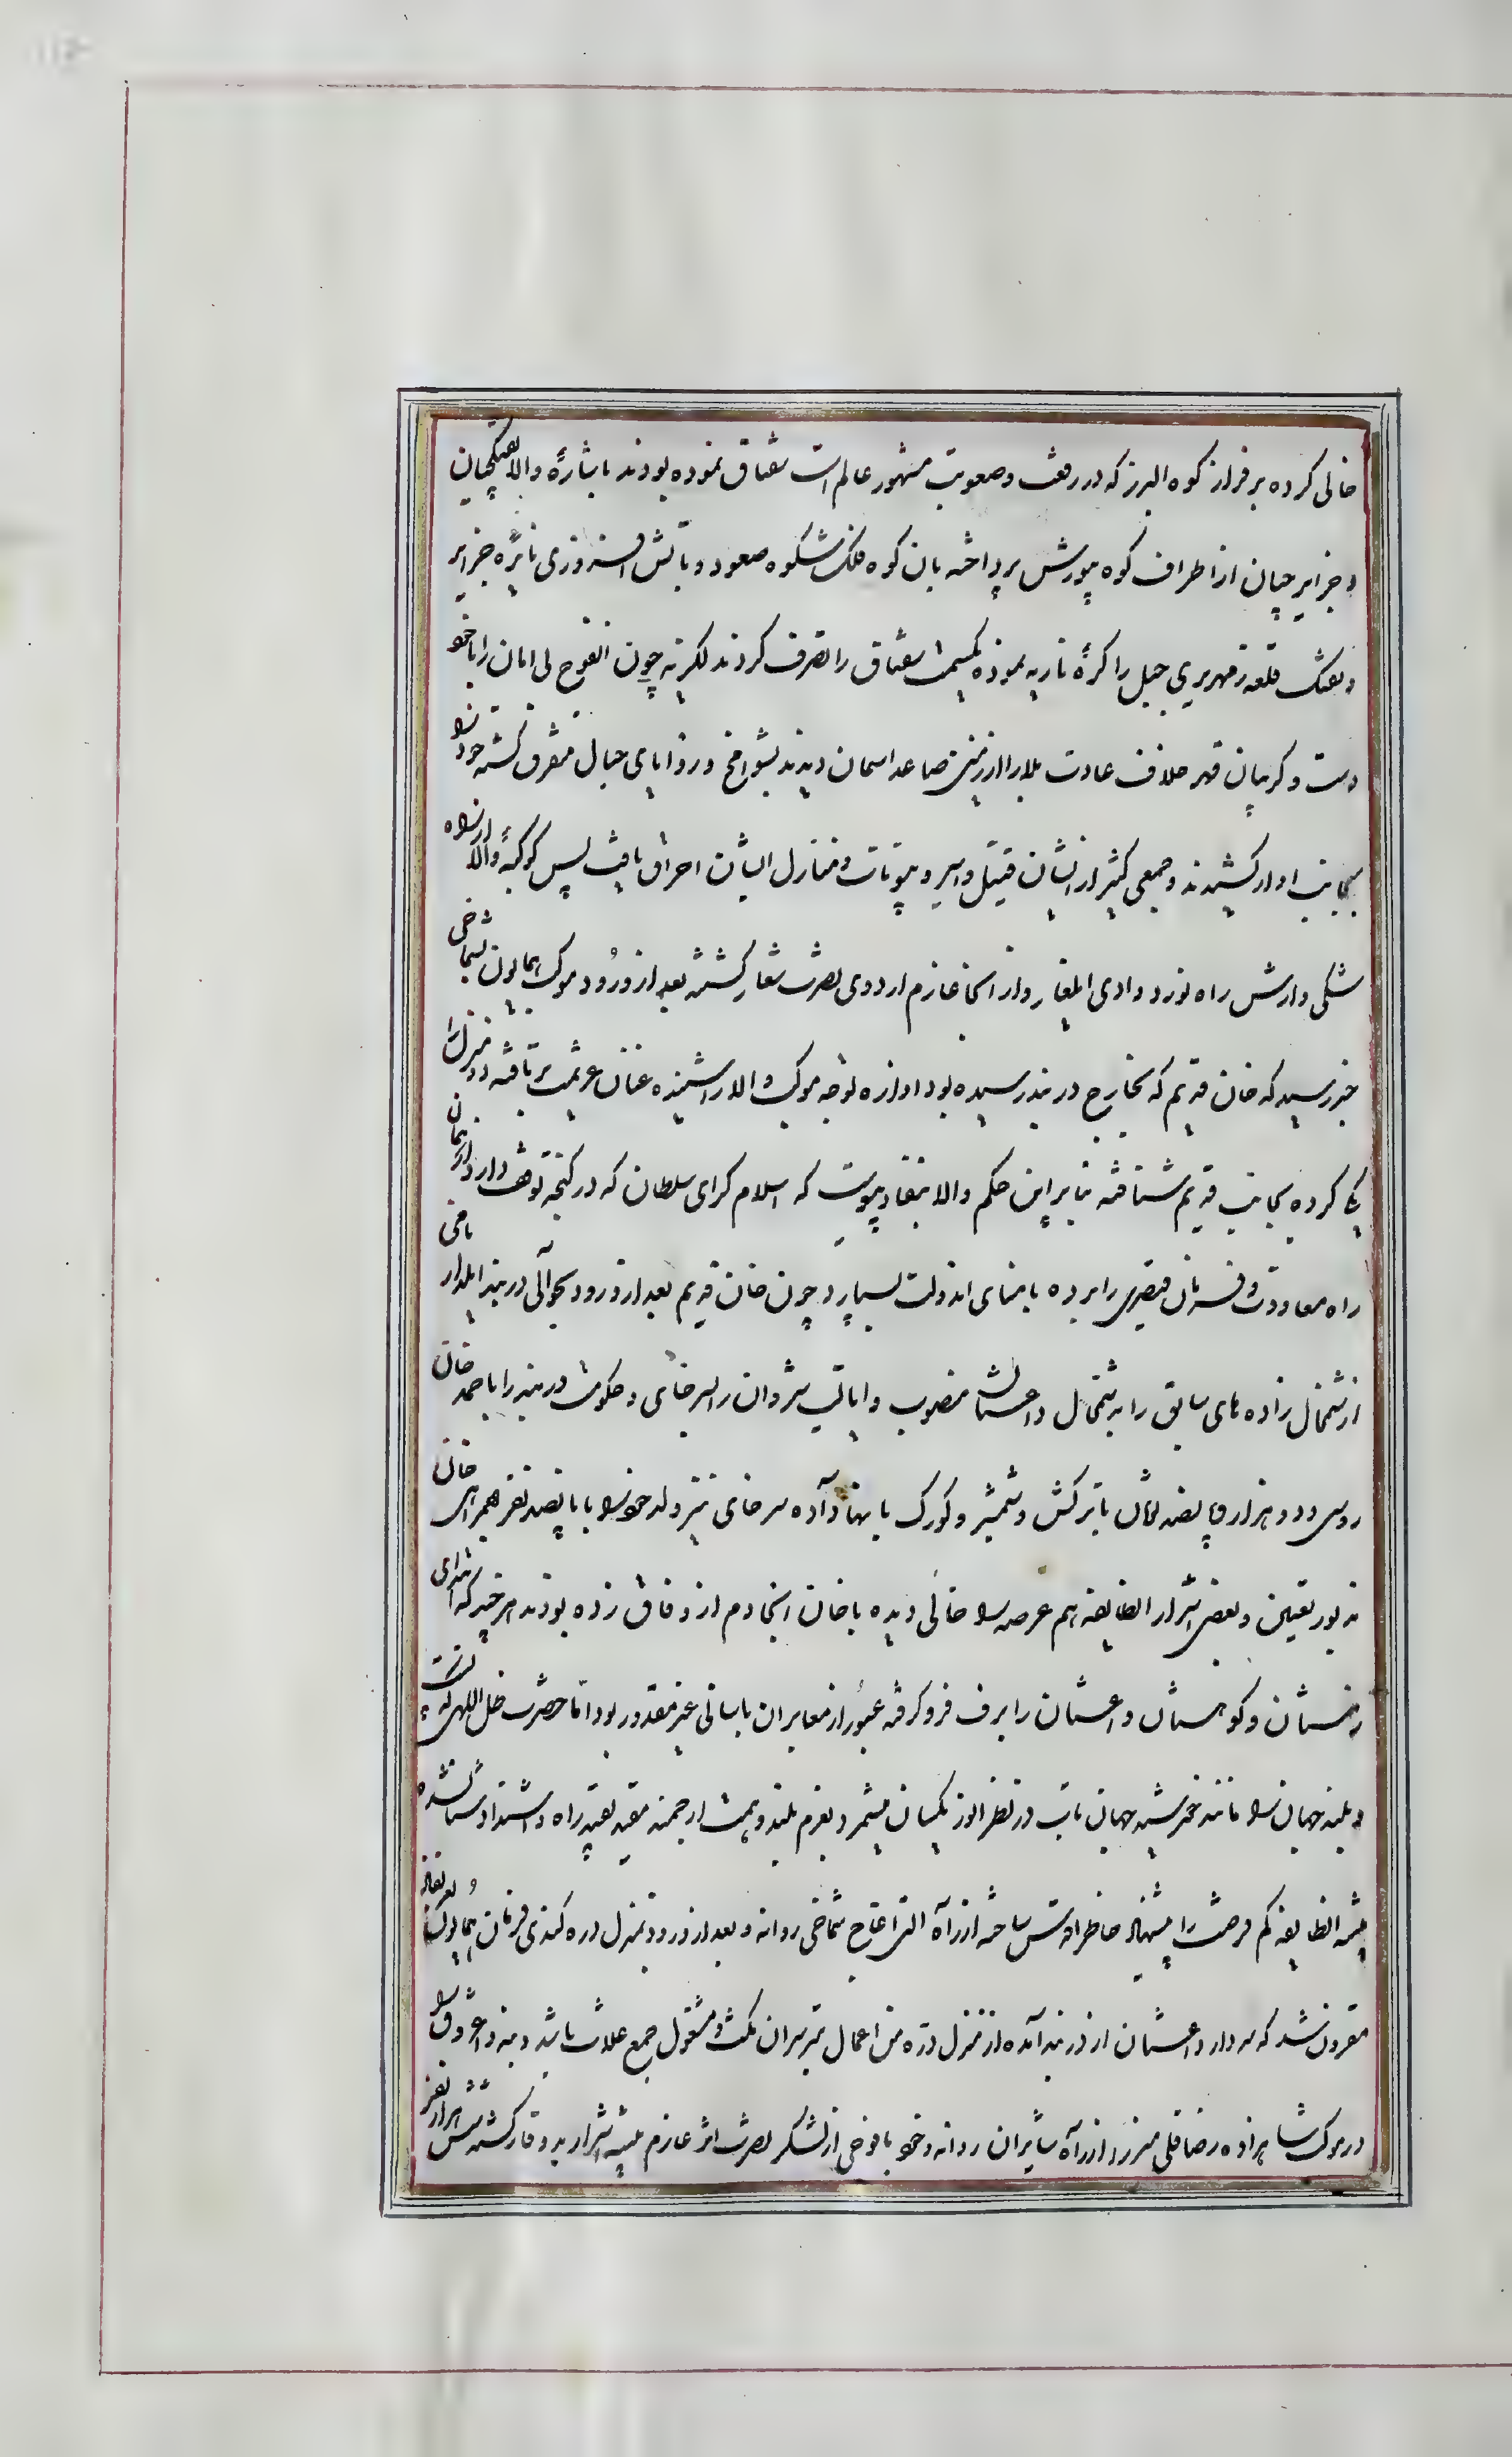 خالی کرده بر فراز کوه البرز که در رفعت و صعوبت مشهور عالم است سقناق نموده بودند باشارهٔ والا تفنگچیان
و جزایرچیان از اطراف کوه یورش پرداخته بان کوه فلک شکوه صعود و باتش افروزی نایرهٔ جزایر
و تفنگ قلعه زمهریری جبل را کرهٔ ناریه نموده سقناق را تصرف کردند لکزیه چون افواج بی امان را با خود
دست و کریبان قهر خلاف عادت بلا را از زمین صاعد اسمان دیدند بشوامخ و زوایای جبال متفرق کشته خود را
بجانب اوار کشیدند و جمعی کثیر از ایشان قتیل و اسیر و بیوتات و منازل ایشان احراق یافت پس کوکبهٔ والا از راه
شکی و ارش راه نورد وادی ایلغار و از انجا عازم اردوی نصرت شعار کشته بعد از ورود موکب همایون بشماخی
خبر رسید که خان قریم که بخارج دربند رسیده بود اوازه توجه موکب والا را شنیده عنان عزیمت برتافته دو منزل را
یکی کرده بجانب قریم شتافته بنا بر این حکم والا بنفاد پیوست که اسلام کرای سلطان که در کنجه توقف دارد از همان
راه معاودت و فرمان قیصری را برده بامنای اندولت بسپارد چون خان قریم بعد از ورود بحوالی دربند ایلدار نامی
از شمخال زاده های سابق را به شمخالی داغستان منصوب و ایالت شروان را بسرخای و حکومت دربند را باحمد خان
اوسمی و دو هزار و پانصد تومان با ترکش و شمشیر و کورک بانها داده سرخای نیز ولد خود را با پانصد نفر همراهی خان
مزبور تعیین و بعضی اشرار الطایفه هم عرصه را خالی دیده با خان انجا دم از وفاق زده بودند هر چند که ابتدای
زمستان و کوهستان داغستان را برف فرو کرفته عبور از معابر ان باسانی غیر مقدور بود اما حضرت ظل اللهی که پست
و بلند جهان را مانند خورشید جهان تاب در نظر انور یکسان میشمرد بعزم بلند و همت ارجمند مقید تعبیر راه و اشتداد شتا نشده
تنبیه الطایفه کم فرصت را پیشنهاد خاطر اقدس ساخته از راه التی اقاج شماخی روانه و بعد از ورود بمنزل دره کندی فرمان همایون
مقرون شد که سردار داغستان از دربند آمده از منزل دره من اعمال تبرسران مکث و مشغول جمع غلات باشد و بنه و اغروق را
در موکب شاهزاده رضا قلی میرزا از راه شابران روانه و خود با فوجی از لشکر نصرت اثر عازم تنبیه اشرار بدوق و قارکشته شش هزار نفر